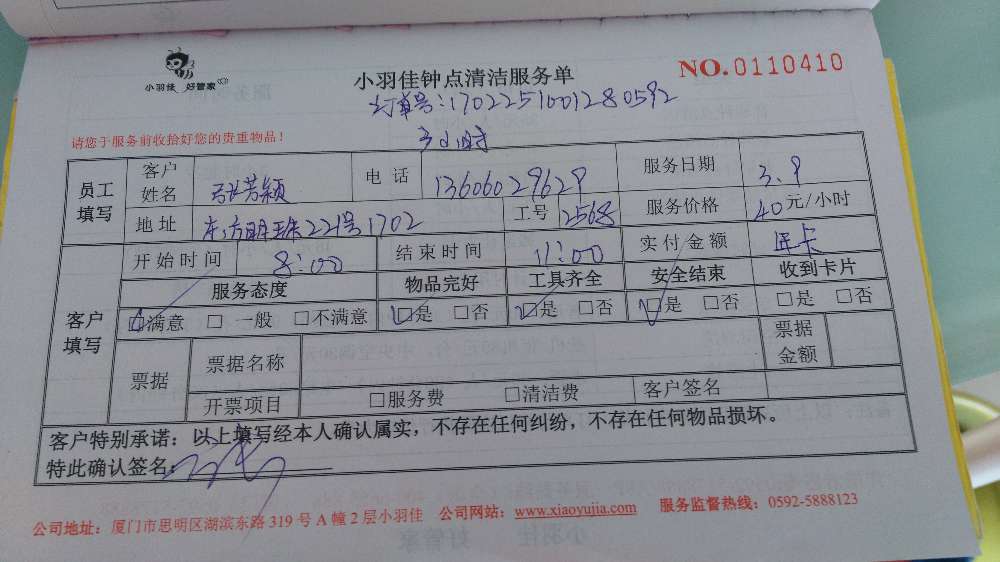 小羽佳 好管家
小羽佳钟点清洁服务单
NO.0110410
订单号:1702251001280592
请您于服务前收拾好您的贵重物品！
3小时
员工填写
客户姓名 张芳颖 电话 13606029629 服务日期 3.9
地址 东方明珠221号1702 工号 2568 服务价格 40元/小时
客户填写
开始时间 8:00 结束时间 11:00 实付金额 年卡
服务态度 物品完好 工具齐全 安全结束 收到卡片
☑满意 □一般 □不满意 ☑是 □否 ☑是 □否 ☑是 □否 □是 □否
票据 票据名称 票据金额
开票项目 □服务费 □清洁费 客户签名
客户特别承诺：以上填写经本人确认属实，不存在任何纠纷，不存在任何物品损坏。
特此确认签名：
公司地址：厦门市思明区湖滨东路319号A幢2层小羽佳 公司网站：www.xiaoyujia.com 服务监督热线：0592-5888123